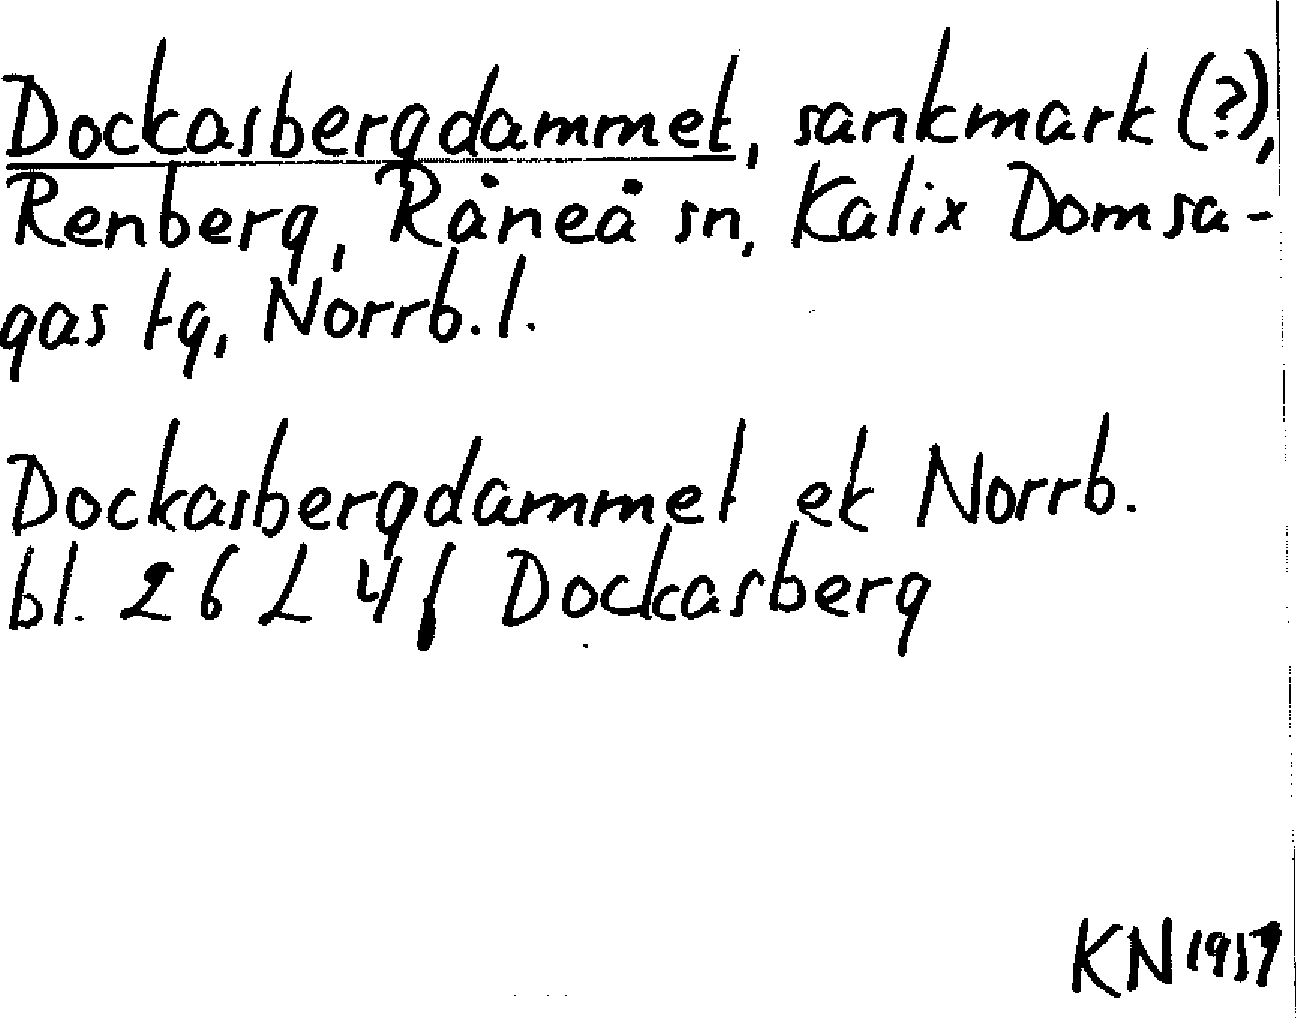 Dockasbergdammet, sankmark (?),
Renberg, Råneå sn, Kalix Domsa-
gas tg, Norrb. l.
Dockasbergdammet ek Norrb.
bl. 26 L 4 f Dockasberg
KN